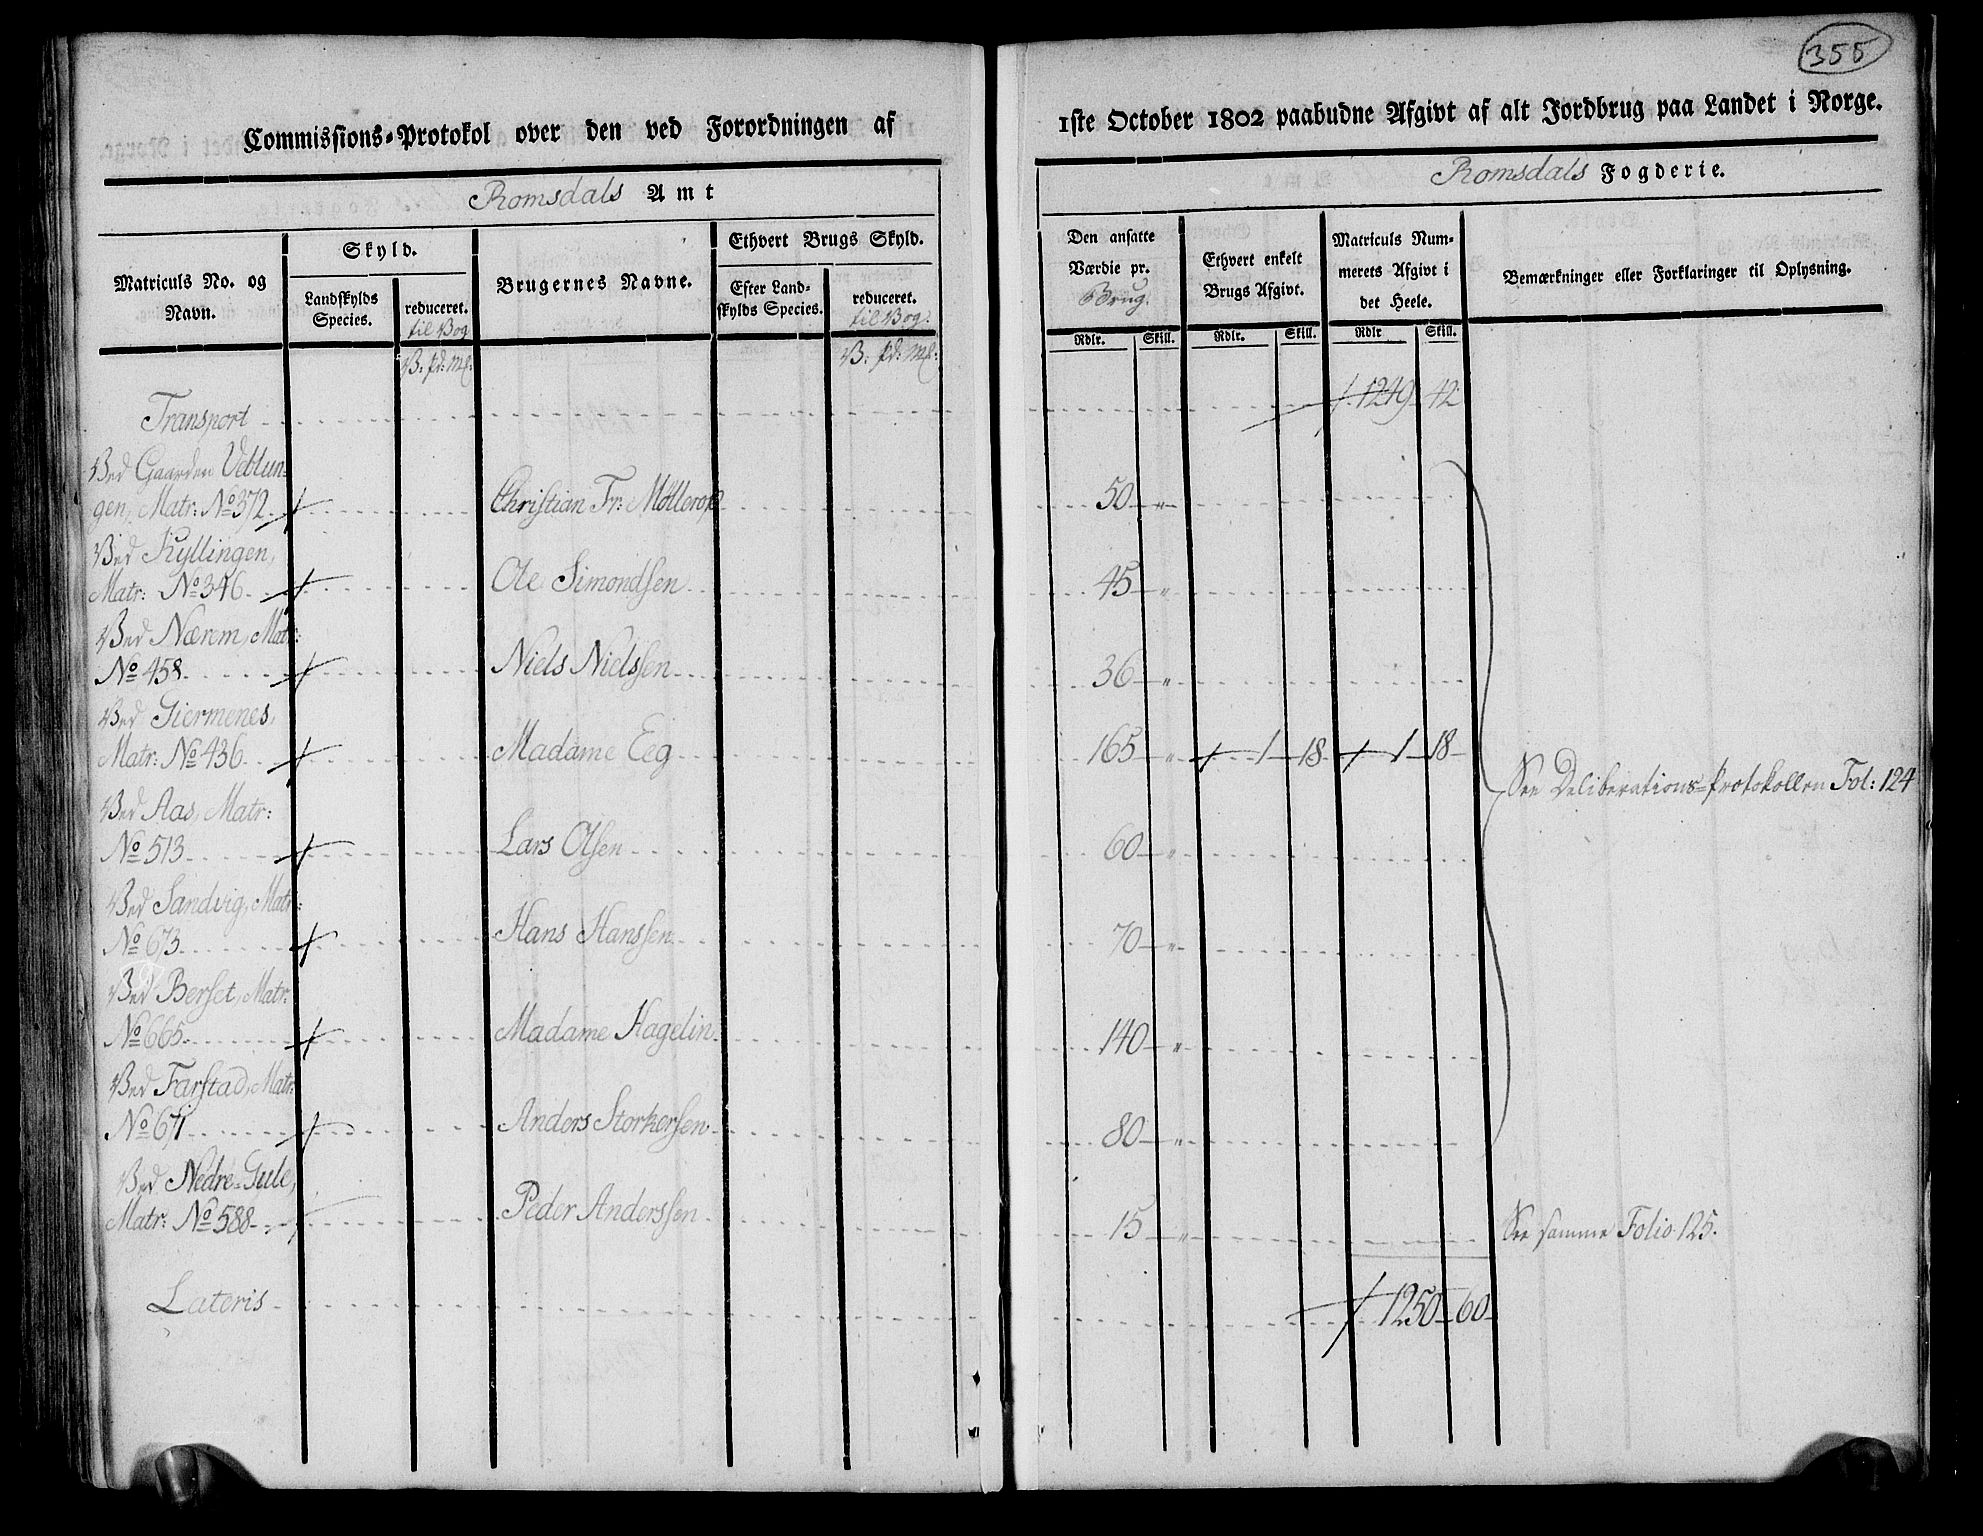 355
Commissions-Protokol over den ved Forordningen af 1ste October 1802 paabudne Afgivt af alt Jordbrug paa Landet i Norge.
Romsdals Amt
Romsdals Fogderie.
Matriculs No. og Navn.
Skyld.
Landskylds Species.
reduceret. til Vog
V. pd: Ml:
Brugernes Navne.
Ethvert Brugs Skyld.
Efter Landskylds Species.
reduceret. til Vog:
V: pd: Ml:
Den ansatte Værdie pr. Brug.
Rdlr. Skill.
Ethvert enkelt Brugs Afgivt.
Rdlr. Skill.
Matriculs Nummerets Afgivt i det Heele.
Rdlr Skill.
Bemærkninger eller Forklaringer til Oplysning.
Transport 1249 42
Ved Gaarden Veblun-
gen, Matr: No 372. Christian Fr: Møllerop 50 "
Ved Kyllingen,
Matr: No 346 Ole Simondsen 45 "
Ved Nærem, Matr:
No 458 Niels Nielssen 36 "
Ved Giermenes,
Matr: No 436 Madame Eeg 165 " 1 18 1 18
See Deliberations-Protokollen Fol: 124
Ved Aas, Matr:
No 513 Lars Olsen 60 "
Ved Sandvig, Matr:
No 673 Hans Hanssen 70 "
Ved Berset, Matr:
No 665 Madame Hagelin 140 "
Ved Farstad, Matr:
No 671 Anders Storkersen 80 "
Ved Nedre-Gule,
Matr: No 588 Peder Anderssen 15 " See samme Folio 125.
Lateris 1250 60